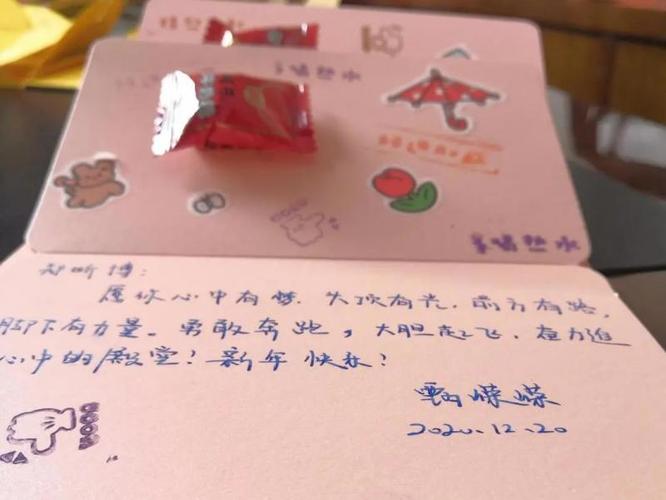 多喝热水
多喝热水
郑昕博：
愿你心中有梦，头顶有光，前方有路，
脚下有力量。勇敢奔跑，大胆起飞，奋力进
心中的殿堂！新年快乐！
甄嵘嵘
2020.12.20
GOOD